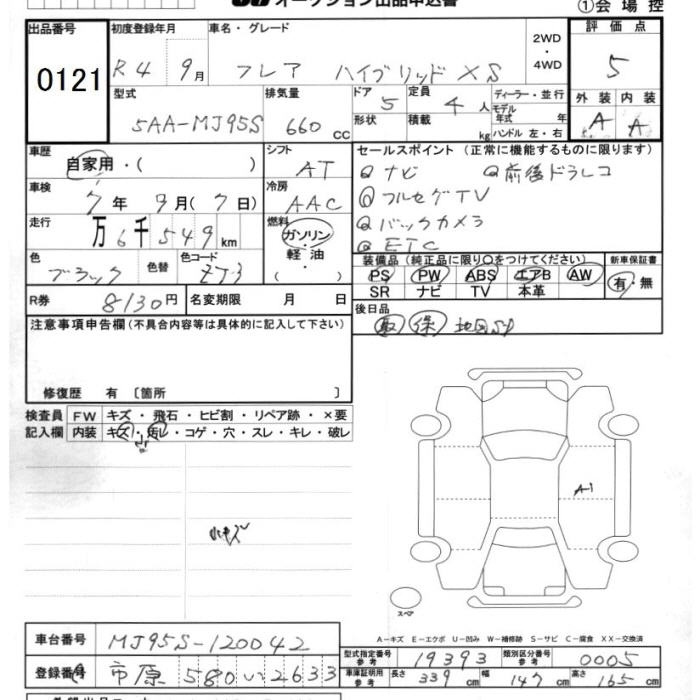 オークション出品申込書 ①会場控
出品番号 初度登録年月 車名・グレード 2WD ・ 4WD 評価点
0121 R4 9月 フレア ハイブリッドXS 5
型式 排気量 ドア 定員 ディーラー・並行 外装 内装
5AA-MJ95S 660cc 5 4人 モデル年式 年 A A
形状 積載 kg ハンドル 左・右
車歴 自家用・( ) シフト AT セールスポイント (正常に機能するものに限ります)
ナビ 前後ドラレコ
車検 7年 9月(7日) 冷房 AAC フルセグTV
走行 万6千549km 燃料 ガソリン・軽油・( ) バックカメラ
ETC
色 ブラック 色替 色コード ZJ3
装備品 (純正品に限り○をつけてください) 新車保証書
PS PW ABS エアB AW 有・無
SR ナビ TV 本革
R券 8130円 名変期限 月 日 後日品
取 保 地図SD
注意事項申告欄 (不具合内容等は具体的に記入して下さい)
修復歴 有 〔箇所 〕
検査員 FW キズ・飛石・ヒビ割・リペア跡・×要
記入欄 内装 キズ・汚レ・コゲ・穴・スレ・キレ・破レ
小
小キズ
A1
スペア
A-キズ E-エクボ U-凹み W-補修跡 S-サビ C-腐食 XX-交換済
車台番号 MJ95S-120042
型式指定番号 参考 19393 類別区分番号 参考 0005
登録番号 市原 580 い 2633
車庫証明用 参考 長さ 339cm 幅 147cm 高さ 165cm